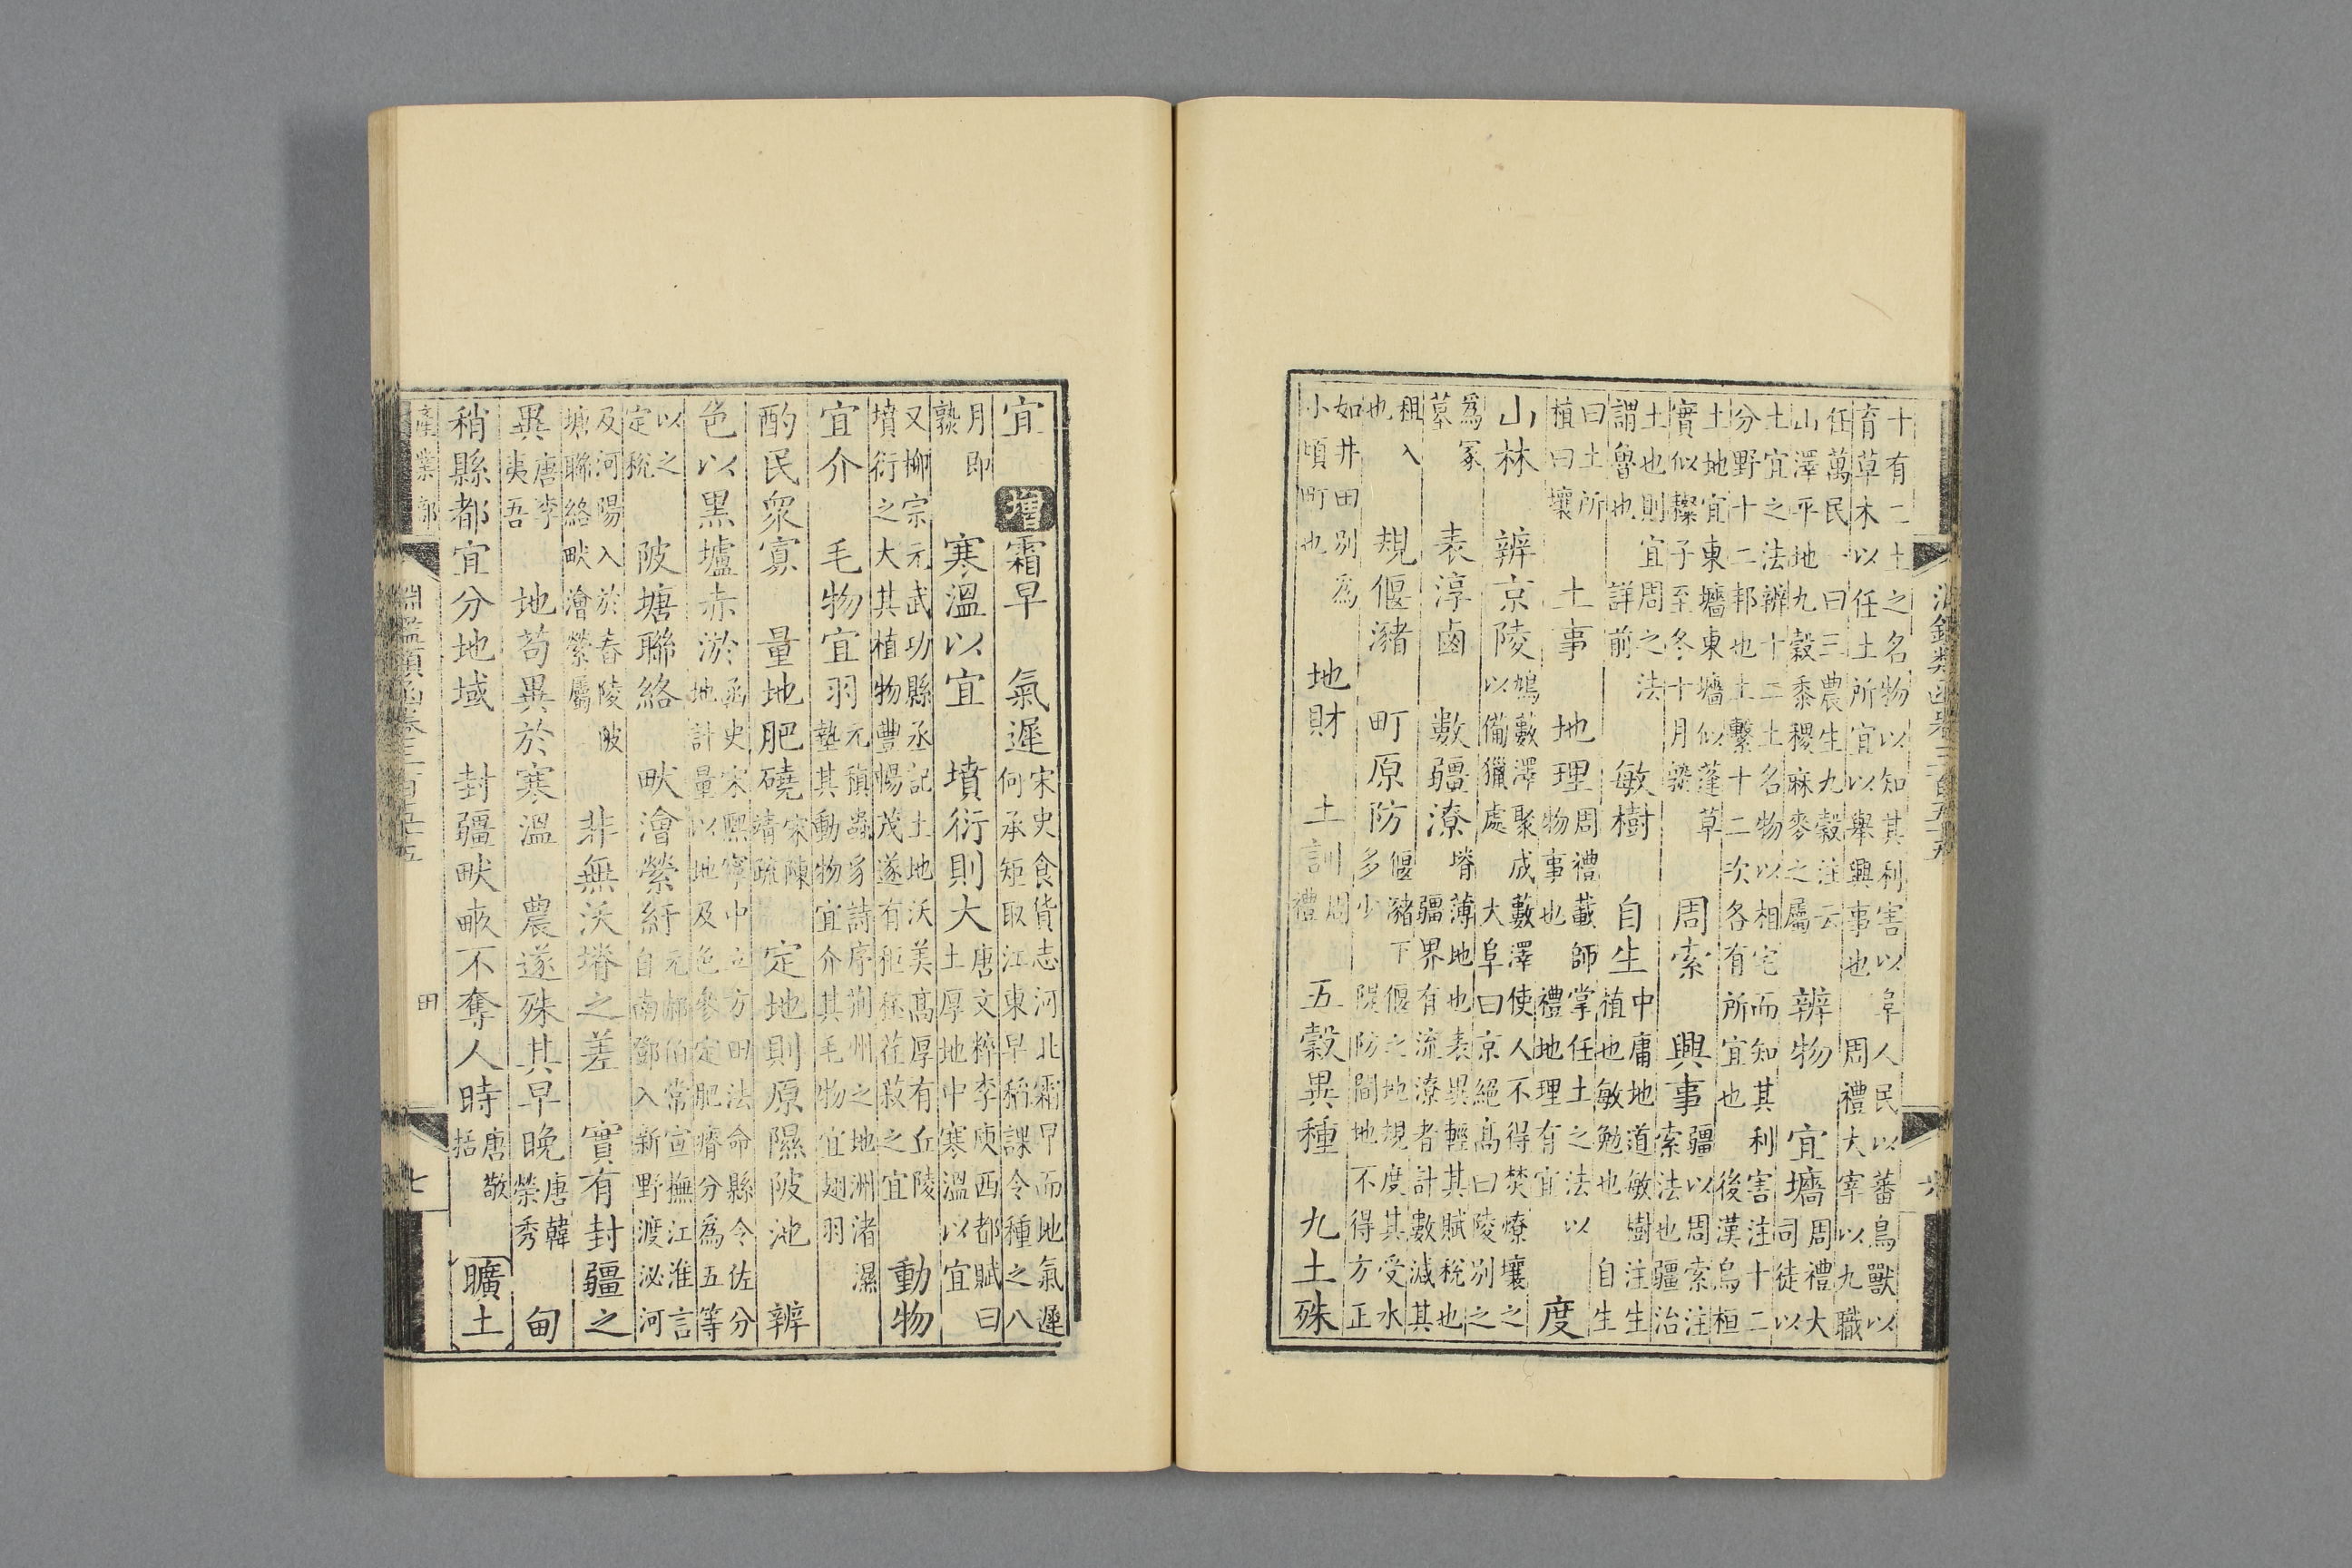 淵鑑類函卷三百五十五
十有二土之名物以知其利害以阜人民以蕃鳥獸以
育草木以任土所宜以舉興事也 周禮大宰以九職
任萬民一曰三農生九穀注云
山澤平地九穀黍稷麻麥之屬
辨物 宜墻
周禮大
司徒以
土宜之法辨十二土名物以相宅而知其利害注十二
分野十二邦也土繫十二次各有所宜也 後漢烏桓
土地宜東墻東墻似蓬草
實似穄子至冬十月熟
周索 興事
疆以周索注
索法也疆治
土也則宜周之法
謂魯也 詳前
敏樹 自生
中庸地道敏樹注生
植也敏勉也 自生
曰土所
植曰壤
土事 地理
周禮載師掌任土之法以
物事也 禮地理有宜
度
山林 辨京陵
鳩藪澤聚成藪澤使人不得焚燎壞之
以備獵處大阜曰京絕高曰陵別之
爲冢
墓
表淳鹵 數疆潦
塉薄地也表異輕其賦稅也
疆界有流潦者計數減其
租入
也
規偃瀦 町原防
偃瀦下偃之地規度其受水
多少 隄防間地不得方正
如井田別爲
小頃町也
地財 土訓
周
禮
五穀異種 九土殊
宜 增 霜早 氣遲
宋史食貨志河北霜早而地氣遲
何承矩取江東早稻課令種之八
月即
熟
寒溫以宜 墳衍則大
唐文粹李庾西都賦曰
土厚地中寒溫以宜
又柳宗元武功縣丞記土地沃美高厚有丘陵
墳衍之大其植物豐暢茂遂有秬秠荏菽之宜
動物
宜介 毛物宜羽
元稹蟲豸詩序荆州之地洲渚濕
墊其動物宜介其毛物宜翅羽
酌民衆寡 量地肥磽
宋陳
靖疏
定地則原隰陂池 辨
色以黑壚赤淤
函史宋熙寧中立方田法命縣令佐分
地計量以地及色參定肥瘠分爲五等
以之
定稅
陂塘聯絡 畎澮縈紆
元郝伯常宣撫江淮言
自南鄧入新野渡泌河
及河陽入於舂陵陂
塘聯絡畎澮縈屬
非無沃塉之差 實有封疆之
異
唐李
夷吾
地苟異於寒溫 農遂殊其早晚
唐韓
榮秀
甸
稍縣都宜分地域 封疆畎畝不奪人時
唐敬
括
曠土
產業部 田
淵鑑類函卷三百五十五
七